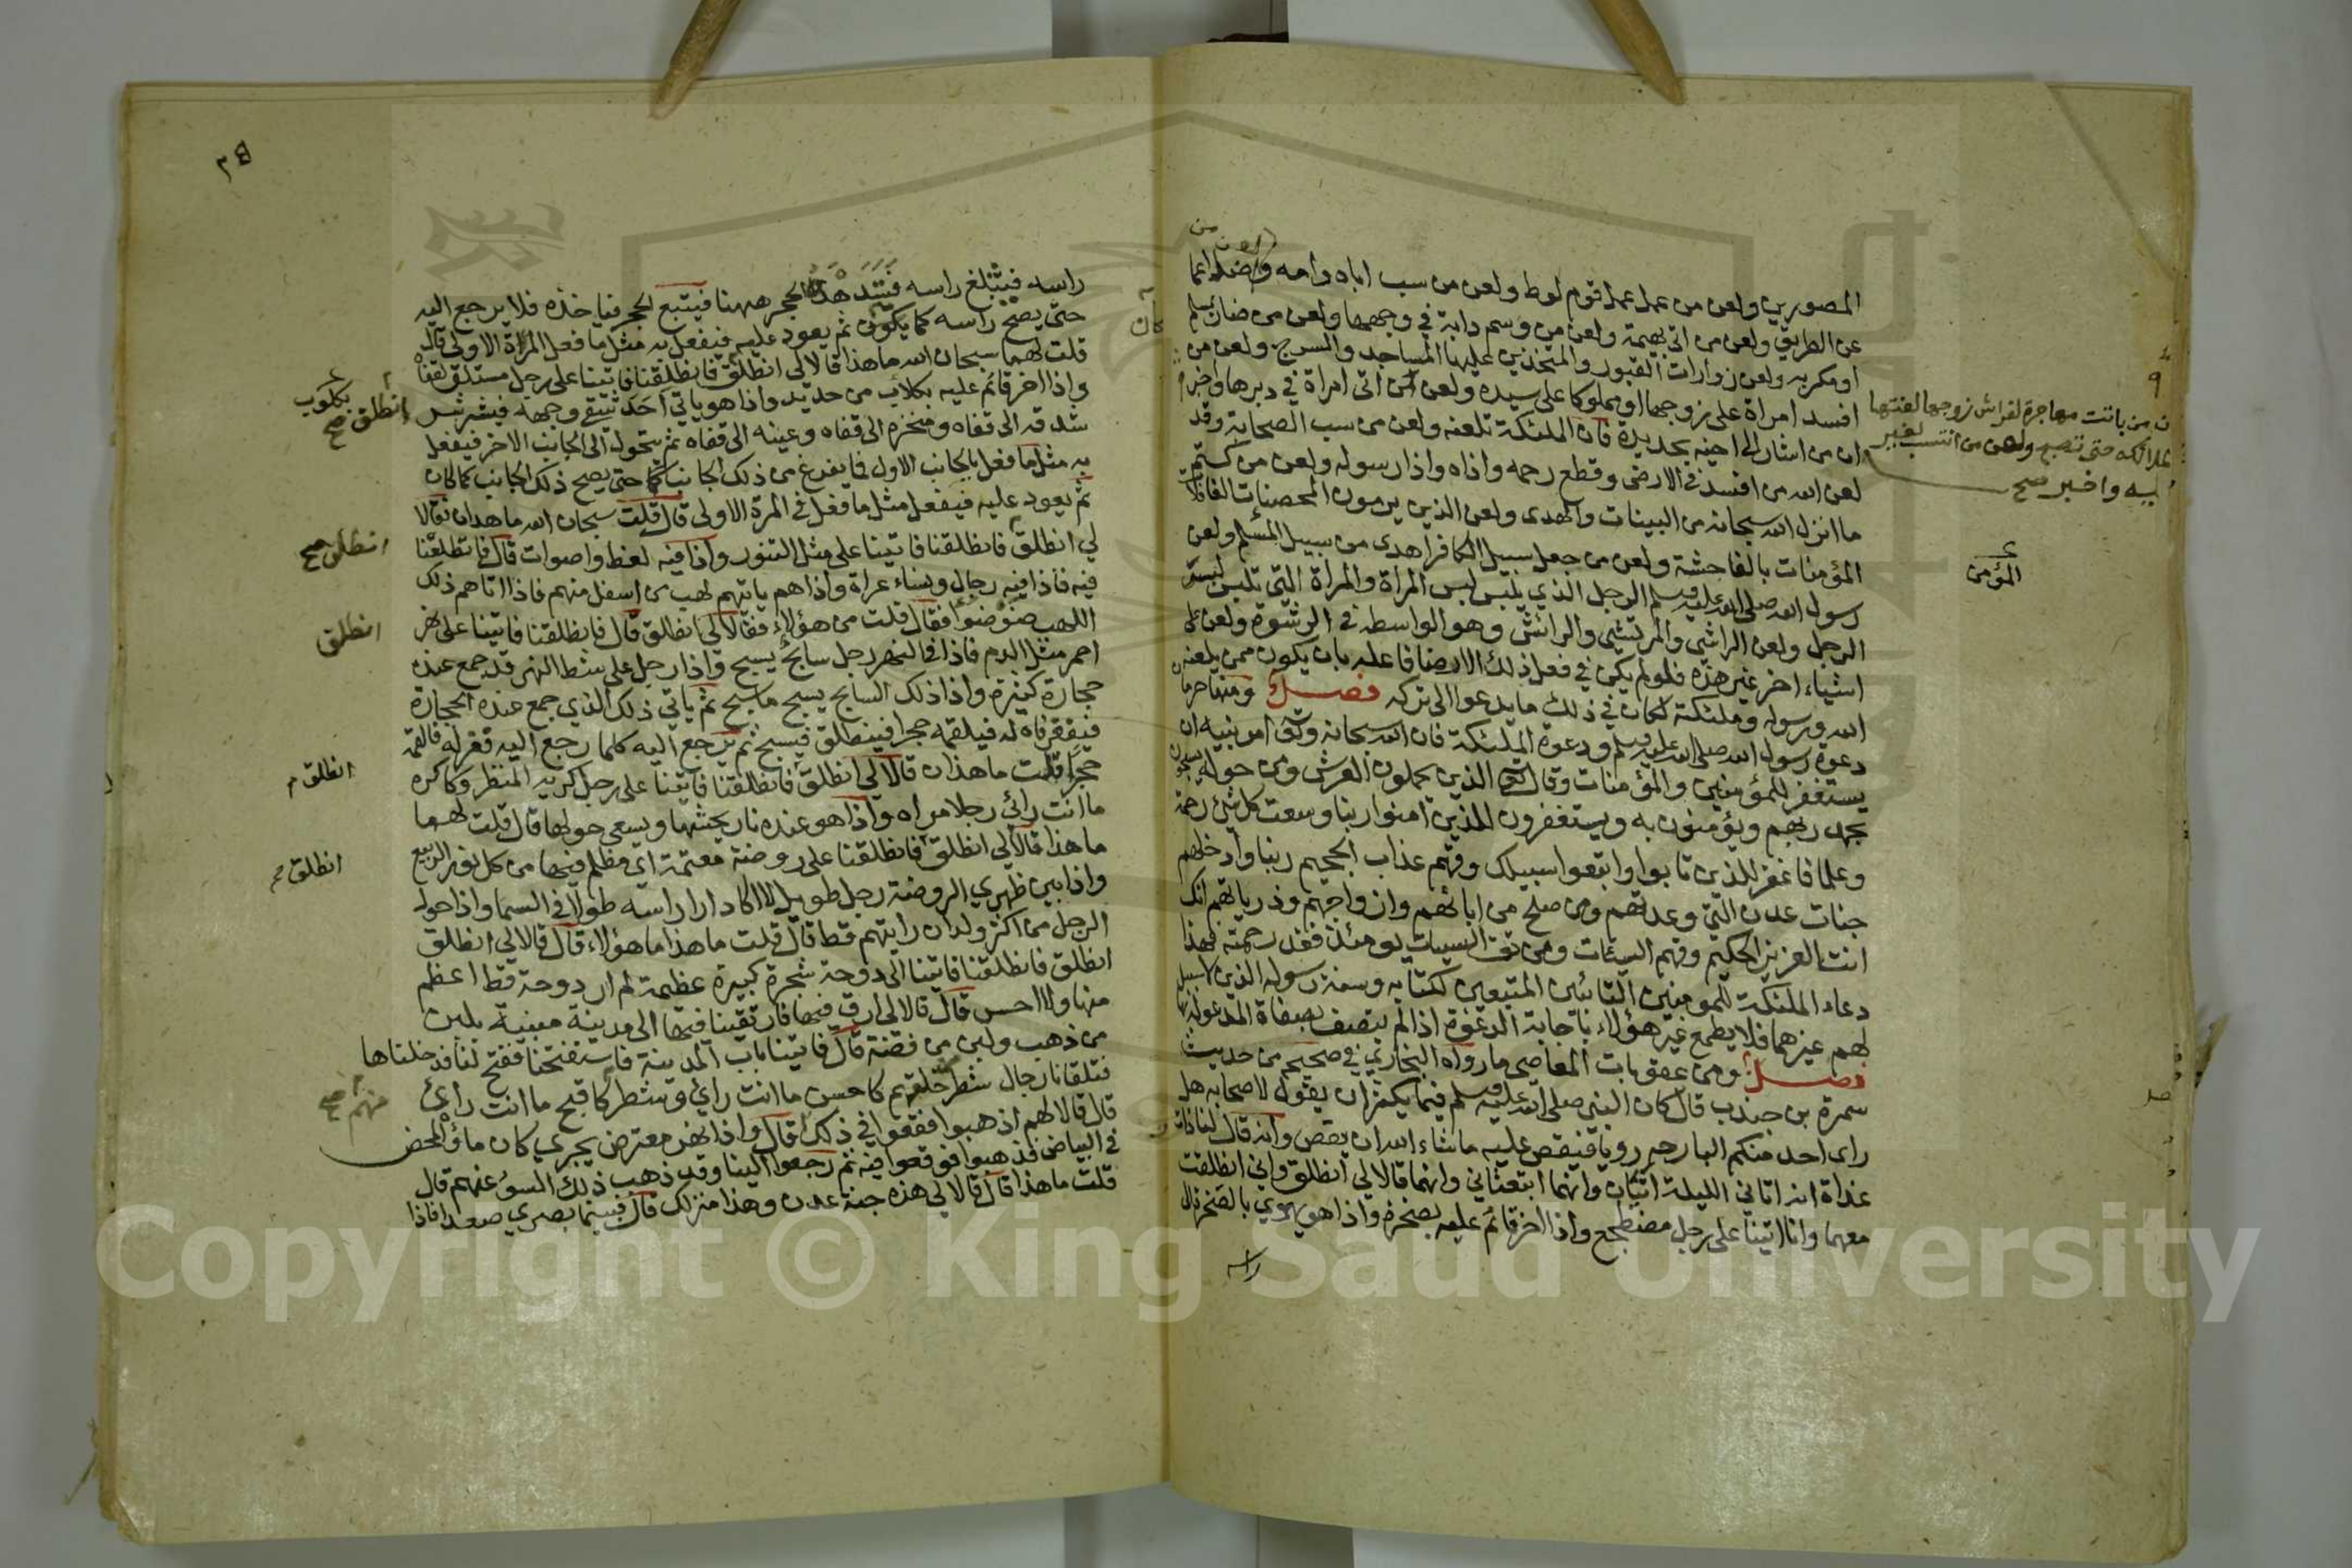 المصورين ولعن من عمل عمل قوم لوط ولعن من سب اباه وامه ولعن من اضل اعما
عن الطريق ولعن من اتى بهيمة ولعن من وسم دابة في وجهها ولعن من ضار بمسلم
او مكر به ولعن زوارات القبور والمتخذين عليها المساجد والسرج ولعن من
افسد امراة على زوجها او مملوكا على سيده ولعن من اتى امراة في دبرها واخبر
ان من باتت مهاجرة لفراش زوجها لعنتها
الملائكه حتى تصبح ولعن من انتسب لغير
ابيه واخبر صح
ان من اشار الى اخيه بحديدة فان الملئكة تلعنه ولعن من سب الصحابة وقد
لعن الله من افسد في الارض وقطع رحمه واذاه واذا رسوله ولعن من كتم
ما انزل الله سبحانه من البينات والهدى ولعن الذين يرمون المحصنات الغافلات
المؤمنات بالفاحشة ولعن من جعل سبيل الكافر اهدى من سبيل المسلم ولعن
المؤمن
رسول الله صلى الله عليه وسلم الرجل الذي يلبس لبس المراة والمراة التي تلبس لبسة
الرجل ولعن الراشي والمرتشي والرائش وهو الواسطة في الرشوة ولعن على
اشياء اخر غير هذه فلو لم يكن في فعل ذلك الا رضا فاعله بان يكون ممن يلعنه
الله ورسوله وملئكته لكان في ذلك ما يدعوا الى تركه فصل ومنها حرمان
دعوة رسول الله صلى الله عليه وسلم ودعوة الملئكة فان الله سبحانه وتعالى امر نبيه ان
يستغفر للمؤمنين والمؤمنات وقال تعالى الذين يحملون العرش ومن حوله يسبحون
بحمد ربهم ويؤمنون به ويستغفرون للذين امنوا ربنا وسعت كل شئ رحمة
وعلما فاغفر للذين تابوا واتبعوا سبيلك وقهم عذاب الجحيم ربنا وادخلهم
جنات عدن التي وعدتهم ومن صلح من ابائهم وازواجهم وذرياتهم انك
انت العزيز الحكيم وقهم السيئات ومن تق السيئات يومئذ فقد رحمته فهذا
دعاء الملئكة للمومنين التائبين المتبعين لكتابه وسنة رسوله الذين لا سبيل
لهم غيرهما فلا يطمع غير هؤلاء باجابة الدعوة اذا لم يتصف بصفاة المدعو له بها
فصل ومن عقوبات المعاصي ما رواه البخاري في صحيحه من حديث
سمرة بن جندب قال كان النبي صلى الله عليه وسلم فيما يكثر ان يقول لاصحابه هل
راى احد منكم البارحه رويا فيقص عليه ماشاء الله ان يقص وانه قال لنا ذات
غداة انه اتاني الليلة اتيان وانهما ابتعثاني وانهما قالا لي انطلق واني انطلقت
معهما وانا اتينا على رجل مضطجع واذا اخر قائم عليه بصخرة واذا هو يهوي بالصخرة ال
راسه
٣٤
راسه فيثلغ راسه فيتدهده الحجر ههنا فيتبع الحجر فياخذه فلا يرجع اليه
حتى يصح راسه كما يكون ثم يعود عليه فيفعل به مثل ما فعل المراة الاولى قال
كان
قلت لهما سبحان الله ما هذا قالا لي انطلق فانطلقنا فاتينا على رجل مستلق لقفاه
انطلق صح
واذا اخر قائم عليه بكلاب من حديد واذا هو ياتي احد شقي وجهه فيشرشر
بكلوب
شدقه الى قفاه ومنخره الى قفاه وعينه الى قفاه ثم يتحول الى الجانب الاخر فيفعل
به مثل ما فعل بالجانب الاول فما يفرغ من ذلك الجانب حتى يصح ذلك الجانب كما كان
ثم يعود عليه فيفعل مثل ما فعل في المرة الاولى قال قلت سبحان الله ما هذان فقالا
لي انطلق فانطلقنا فاتينا على مثل التنور واذا فيه لغط واصوات قال فاطلعنا
انطلق صح
فيه فاذا فيه رجال ونساء عراة واذا هم ياتيهم لهب من اسفل منهم فاذا اتاهم ذلك
اللهب ضوضوا فقال قلت من هؤلاء فقالا لي انطلق قال فانطلقنا فاتينا على نهر
انطلق
احمر مثل الدم فاذا في النهر رجل سابح يسبح واذا رجل على شط النهر قد جمع عنده
حجارة كثيرة واذا ذلك السابح يسبح ما سبح ثم ياتي ذلك الذي جمع عنده الحجارة
فيفغر فاه له فيلقمه حجرا فينطلق فيسبح ثم يرجع اليه كلما رجع اليه فغر له فالقمه
حجرا قلت ما هذان قالا لي انطلق فانطلقنا فاتينا على رجل كريه المنظر وكاكره
انطلق م
ما انت رائي رجلا مراه واذا هو عنده نار يحشها ويسعى حولها قال قلت لهما
ما هذا قالا لي انطلق فانطلقنا على روضة معتمة اي مظلم فيها من كل نور الربيع
انطلق م
واذا بين ظهري الروضة رجل طويل لا اكاد ارا راسه طولا في السما واذا حول
الرجل من اكثر ولدان رايتهم قط قال قلت ما هذا ما هؤلاء قال قالا لي انطلق
انطلق فانطلقنا فاتينا الى دوحة شجرة كبيرة عظيمة لم ار دوحة قط اعظم
منها ولا احسن قال قالا لي ارق فيها فارتقينا فيها الى مدينة مبنية بلبن
من ذهب ولبن من فضة قال فاتينا باب المدينة فاستفتحنا ففتح لنا فدخلناها
فتلقانا رجال شطر خلقهم كاحسن ما انت رائي وشطر كاقبح ما انت رائ
منهم صح
قال قالا لهم اذهبوا فقعوا في ذلك قال واذا نهر معترض يجري كان ماؤه المحض
في البياض فذهبوا فوقعوا فيه ثم رجعوا الينا وقد ذهب ذلك السوء عنهم قال
قلت ما هذا قال قالا لي هذه جنة عدن وهذا منزلك قال فبينما بصري صعدا فاذا
Copyright © King Saud University